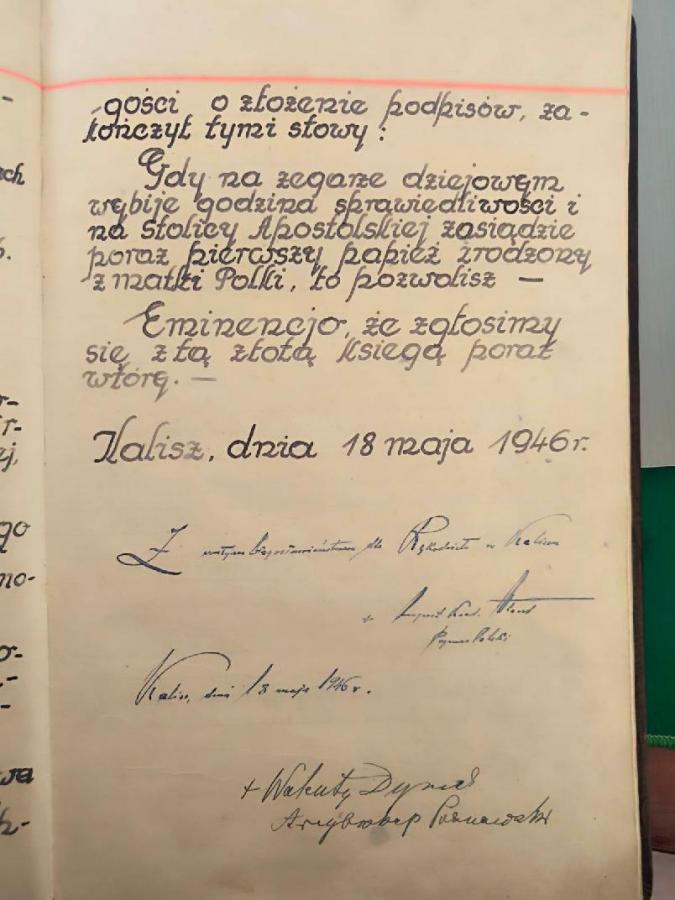 gości o złożenie podpisów, za-
kończył tymi słowy :
Gdy na zegarze dziejowym
wybije godzina sprawiedliwości i
na Stolicy Apostolskiej zasiądzie
poraz pierwszy papież zrodzony
z matki Polki, to pozwolisz —
Eminencjo, że zgłosimy
się z tą złotą księgą poraz
wtóry. —
Kalisz, dnia 18 maja 1946r.
Z błogosławieństwem dla Rękodzieła w Kaliszu
+ August Kard. Hlond
Prymas Polski
Kalisz, dnia 18 maja 1946 r.
+ Walenty Dymek
Arcybiskup Poznański